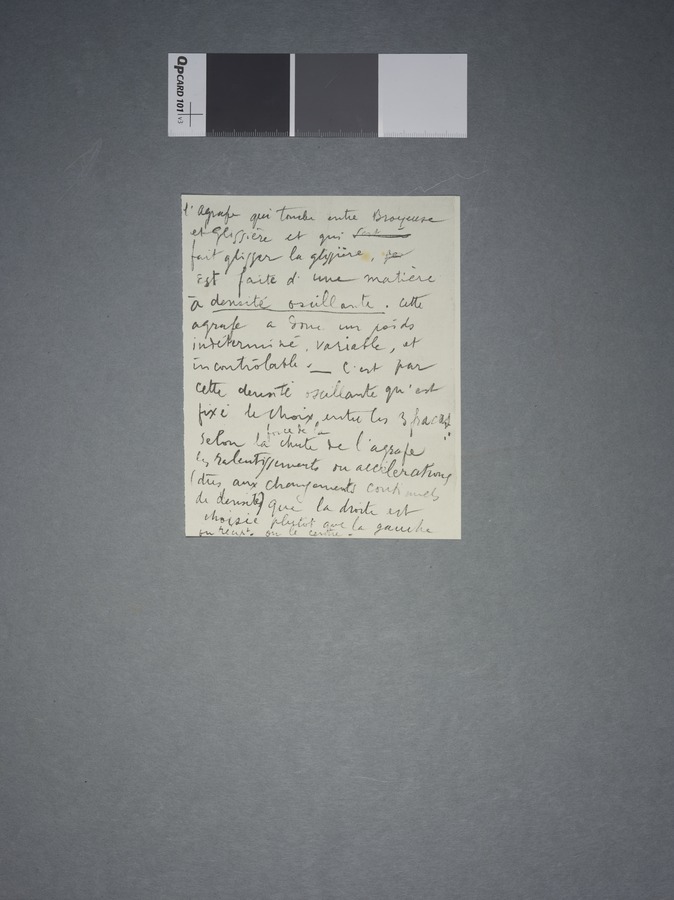 QPCARD 101 v3
l'agrafe qui tombe entre Broyeuse
et Glissière et qui
fait glisser la glissière,
est faite d'une matière
à densité oscillante. Cette
agrafe a donc un poids
indéterminé, variable, et
incontrôlable. — C'est par
cette densité oscillante qu'est
fixé le choix, entre les 3 fracas:
force de la
selon la chute de l'agrafe
les ralentissements ou accélérations
(dûs aux changements continuels
de densité) que la droite est
choisie plutot que la gauche
ou le centre.